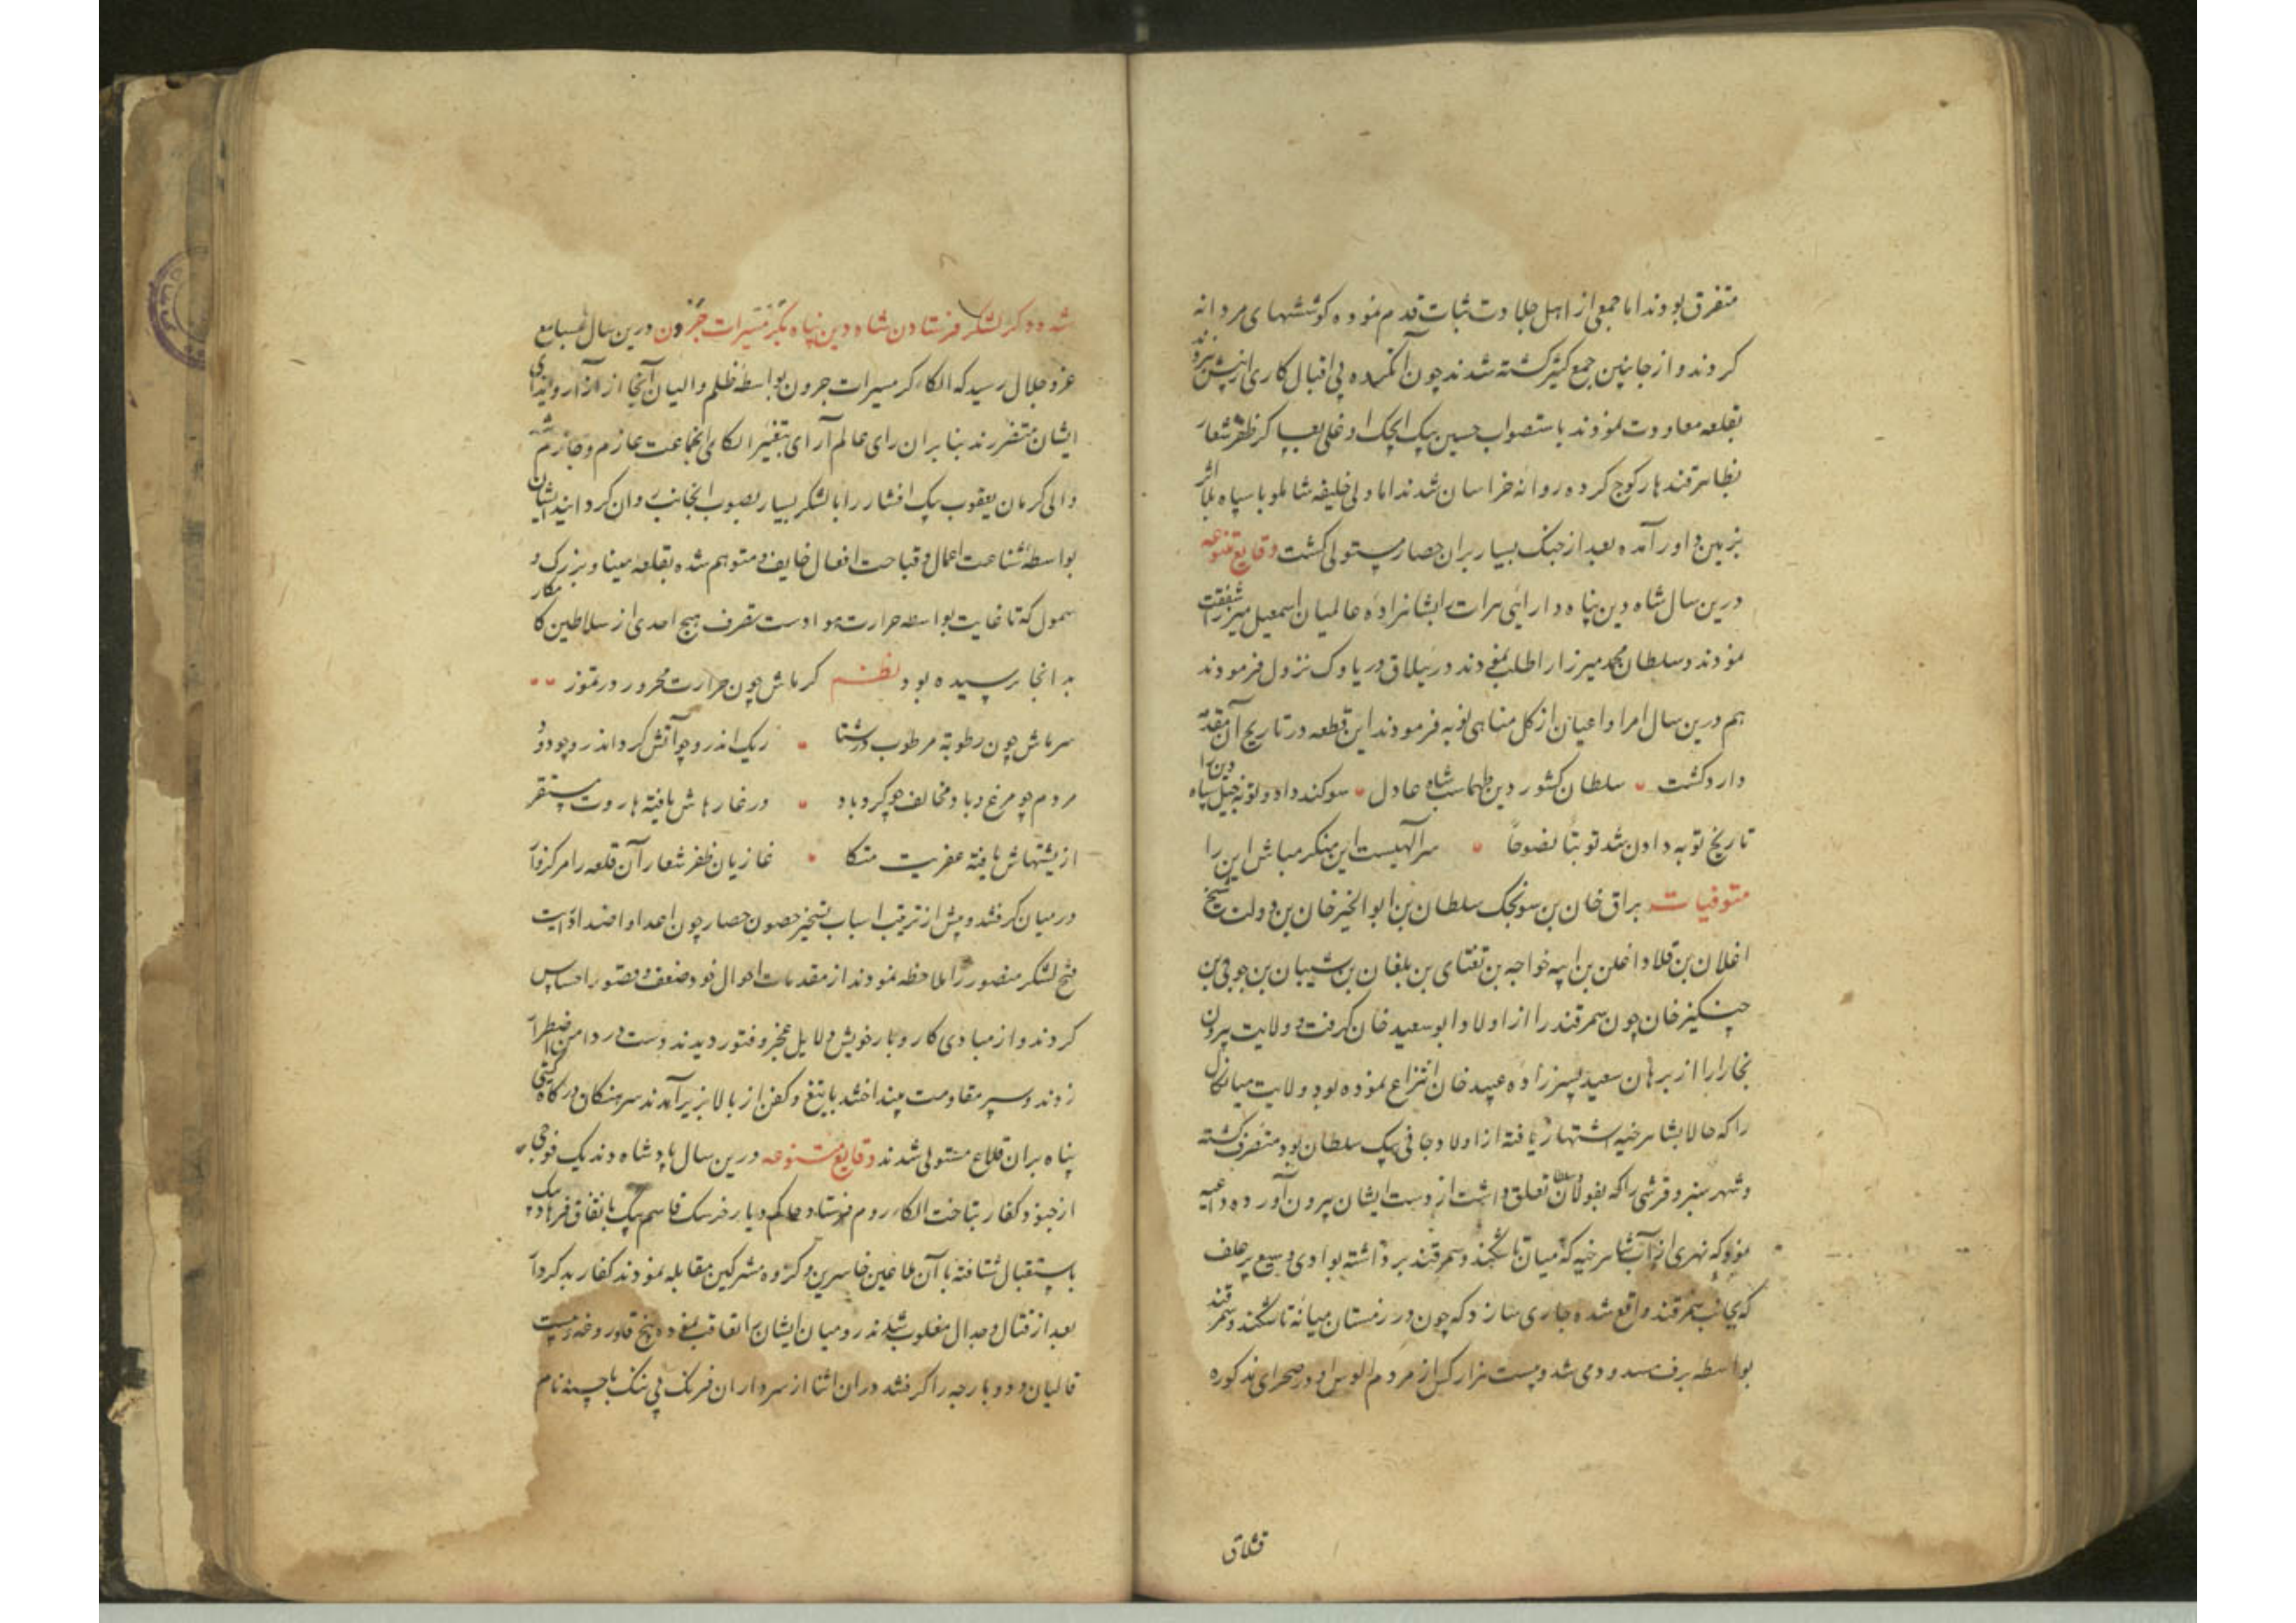 متفرق بودند اما جمعی از اهل جلادت ثبات قدم نموده کوششهای مردانه
کردند و از جانبین جمع کثیر کشته شدند چون آنکرده بی اقبال کاری از پیش نبردند
بقلعه معاودت نمودند باستصواب حسین بیک ایجک اوغلی عساکر ظفر شعار
بظاهر قندهار کوچ کرده روانه خراسان شدند اما ولی خلیفه شاملو با سپاه
بزمین داور آمده بعد از جنک بسیار بران حصار مستولی کشت وقایع متنوعه
درین سال شاه دین پناه دارائی هرات بشاهزاده عالمیان اسمعیل میرزا شفقت
نمودند و سلطان محمد میرزا را طلب نموده در ییلاق نزول فرمودند
هم درین سال امرا و اعیان از کل مناهی توبه فرمودند این قطعه در تاریخ آن
دار دکشت سلطان کشور دین طهماسب شاه عادل سوکند داد و توبه خیل سپاه دین را
تاریخ توبه دادن شد توبتا نصوحا سر الهیست این منکر مباش این را
متوفیات براق خان بن سونجک سلطان بن ابو الخیر خان بن دولت شیخ
اغلان بن اغلن بن ایبه خواجه بن تغتای بن بلغان بن شیبان بن جوجی بن
چنکیز خان چون سمرقند را از اولاد ابو سعید خان کرفت و ولایت بیرون
بخارا را از برهان سعید پسرزاده عبید خان انتزاع نموده بود ولایت میانکال
را که حالا بشاهرخیه اشتهار یافته از اولاد جانی بیک سلطان بود متصرف کشته
و شهر سبز و قرشی را که تعلق داشت از دست ایشان بیرون آورده داعیه
نمود که نهری از آب شاهرخیه که میان تاشکند و سمرقند برداشته بوادی وسیع پر علف
که بجانب سمرقند واقع شده جاری سازد که چون در زمستان میانه تاشکند و سمرقند
بواسطه برف مسدود می شد و بیست هزار کس از مردم الوس او در صحرای مذکوره
قشلاق
شده ذکر لشکر فرستادن شاه دین پناه بکرمسیرات جرون درین سال بمسامع
عز و جلال رسید که الکاء کرمسیرات جرون بواسطه ظلم والیان آنجا از آزار و ایذای
ایشان متضررند بنا بران رای عالم آرای بتغییر الکای انجماعت عازم و جازم شد
والی کرمان یعقوب بیک افشار را با لشکر بسیار بصوب انجانب روان کردانید ایشان
بواسطه شناعت اعمال و قباحت افعال خایف و متوهم شده بقلعه میناو بزرک و
سمول که تا غایت بواسطه حرارت هوا دست تصرف هیچ احدی از سلاطین کامکار
بدانجا نرسیده بود نظم کرماش چون حرارت محرور در تموز
سرماش چون رطوبة مرطوب در شتا ریک اندرو چو آتش کرد اندرو چو دود
مردم چو مرغ و باد مخالف چو کردباد در غارهاش یافته هاروت مستقر
از پشتهاش یافته عفریت متکا غازیان ظفر شعار آن قلعه را مرکزوار
در میان کرفتند و پیش از ترتیب اسباب تسخیر حصون حصار چون اعدا و اضداد آیت
فتح لشکر منصور را ملاحظه نمودند از مقدمات احوال خود ضعف و قصور احساس
کردند و از مبادی کار و بار خویش دلایل عجز و فتور دیدند دست در دامن اضطرار
زدند و سپر مقاومت بینداختند با تیغ و کفن از بالا بزیر آمدند سرهنکان درکاه کیتی
پناه بران قلاع مستولی شدند وقایع متنوعه درین سال پادشاه دند یک فوجی
از جنود کفار بتاخت الکاء روم فرستاد حاکم دیار خرسک قاسم بیک باتفاق فرهاد بیک
باستقبال شتافته با آن ملاعین خاسرین و کروه مشرکین مقابله نمودند کفار بدکردار
بعد از قتال و جدال مغلوب شدند رومیان ایشان را تعاقب نموده پنج
قالیان و دو بارجه را کرفتند در ان اثنا از سرداران فرنک نام